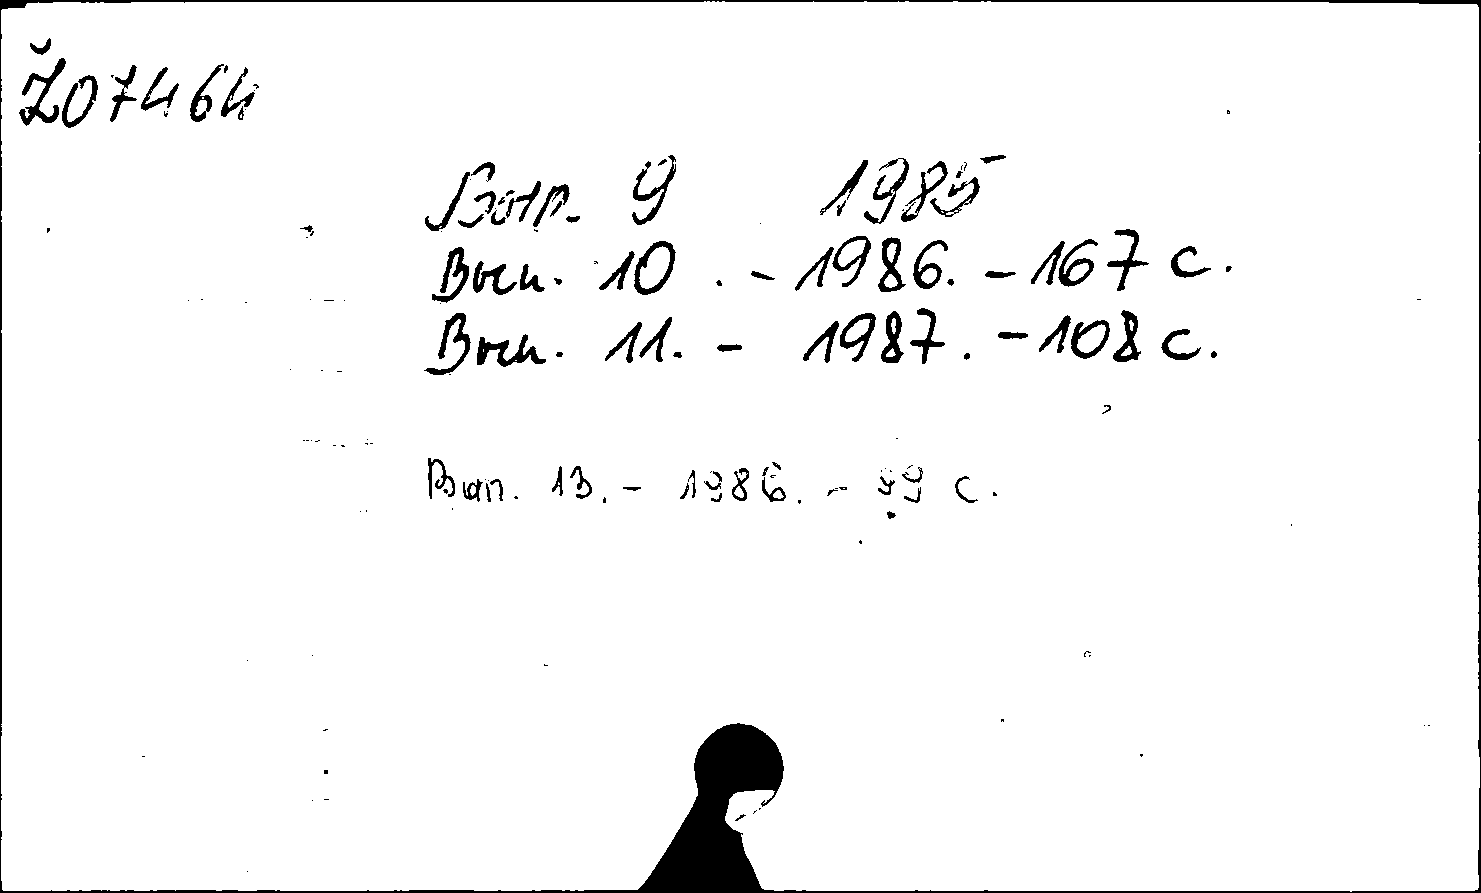 Ž07464
Вып. 9 1985
Вып. 10. - 1986. - 167 с.
Вып. 11. - 1987. - 108 с.
Вып. 13. - 1986. - 99 с.